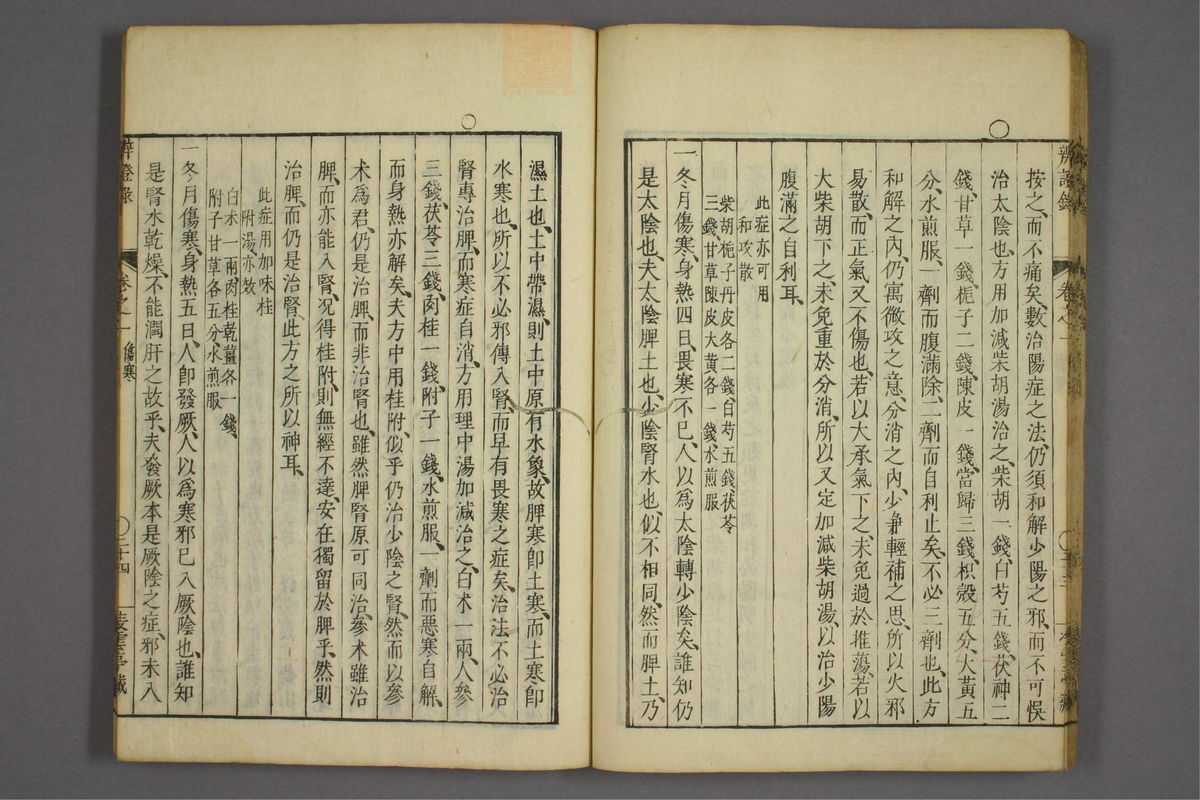 按之、而不痛矣、數治陽症之法、仍須和解少陽之邪、而不可悞
治太陰也、方用加減柴胡湯治之、柴胡一錢、白芍五錢、茯神二
錢、甘草一錢、梔子二錢、陳皮一錢、當歸三錢、枳殼五分、大黃五
分、水煎服、一劑而腹滿除、二劑而自利止矣、不必三劑也、此方
和解之內、仍寓微攻之意、分消之內、少兼輕補之思、所以火邪
易散、而正氣又不傷也、若以大承氣下之、未免過於推蕩、若以
大柴胡下之、未免重於分消、所以又定加減柴胡湯、以治少陽
腹滿之自利耳、
此症亦可用
和攻散
柴胡梔子丹皮各二錢、白芍五錢、茯苓
三錢、甘草陳皮大黃各一錢、水煎服
一冬月傷寒、身熱四日、畏寒不已、人以為太陰轉少陰矣、誰知仍
是太陰也、夫太陰脾土也、少陰腎水也、似不相同、然而脾土、乃
濕土也、土中帶濕、則土中原有水象、故脾寒卽土寒、而土寒卽
水寒也、所以不必邪傳入腎、而早有畏寒之症矣、治法不必治
腎、專治脾、而寒症自消、方用理中湯加減治之、白术一兩、人參
三錢、茯苓三錢、肉桂一錢、附子一錢、水煎服、一劑而惡寒自解、
而身熱亦解矣、夫方中用桂附、似乎仍治少陰之腎、然而以參
术為君、仍是治脾、而非治腎也、雖然脾腎原可同治、參术雖治
脾、而亦能入腎、况得桂附、則無經不達、安在獨留於脾乎、然則
治脾、而仍是治腎、此方之所以神耳、
此症用加味桂
附湯亦效
白术一兩肉桂乾薑各一錢、
附子甘草各五分、水煎服
一冬月傷寒、身熱五日、人卽發厥、人以為寒邪已入厥陰也、誰知
是腎水乾燥、不能潤肝之故乎、夫發厥本是厥陰之症、邪未入
辨證錄
卷之一 傷寒
二十四